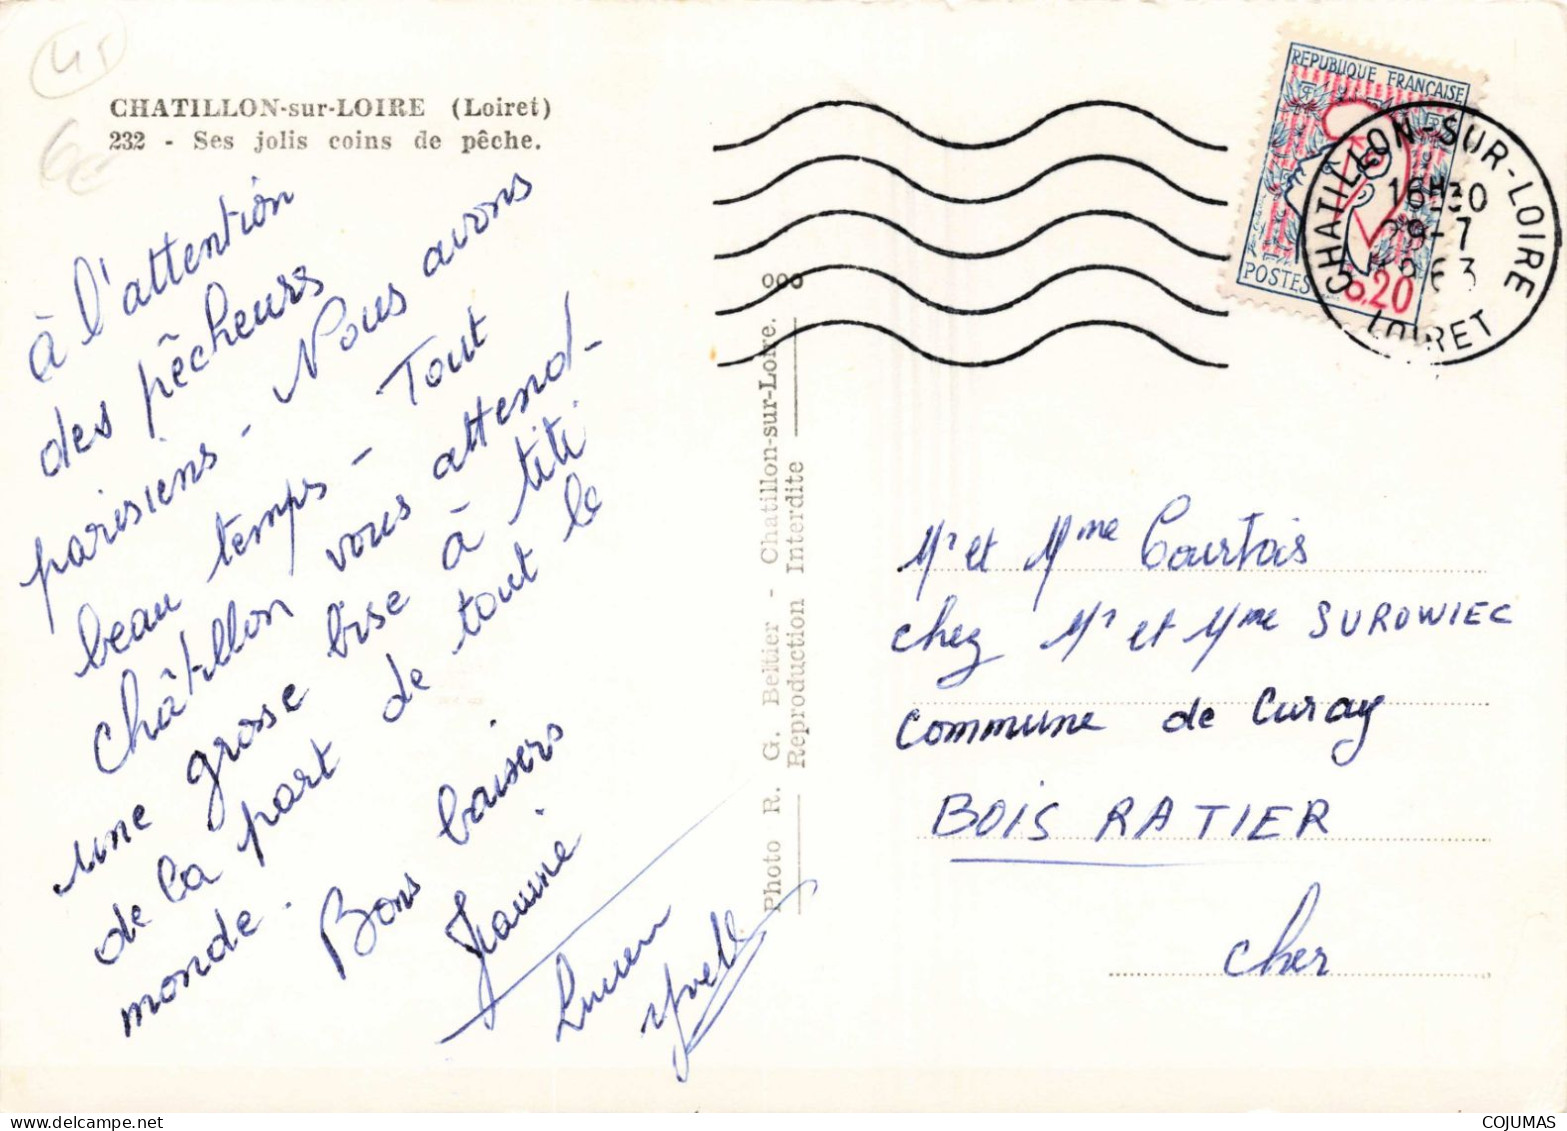 45
CHATILLON-sur-LOIRE (Loiret)
232 - Ses jolis coins de pêche.
à l'attention
des pêcheurs
parisiens - Nous avons
beau temps - Tout
châtillon vous attend-
une grosse bise à titi
de la part de tout le
monde.
Bons baisers
Lucien
Yvell
Photo R. G. Beltier - Chatillon-sur-Loire.
Reproduction Interdite
REPUBLIQUE FRANÇAISE
POSTES 0,20
CHATILLON-SUR-LOIRE
16H30
29-7
63
LOIRET
Mr et Mme Courtois
chez Mr et Mme SUROWIEC
commune de Curay
BOIS RATIER
Cher
www.delcampe.net
COJUMAS